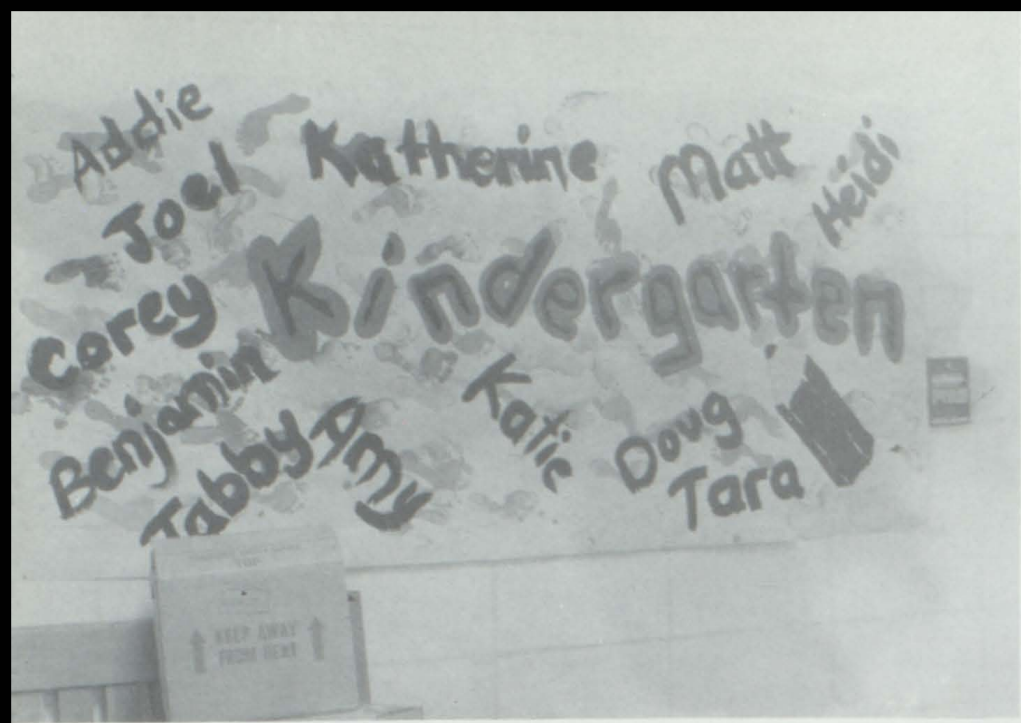 Addie
Joel
Katherine
Matt
Heidi
Corey
Kindergarten
Benjamin
Tabby
Amy
Katie
Doug
Tara
TOP
KEEP AWAY
FROM HEAT